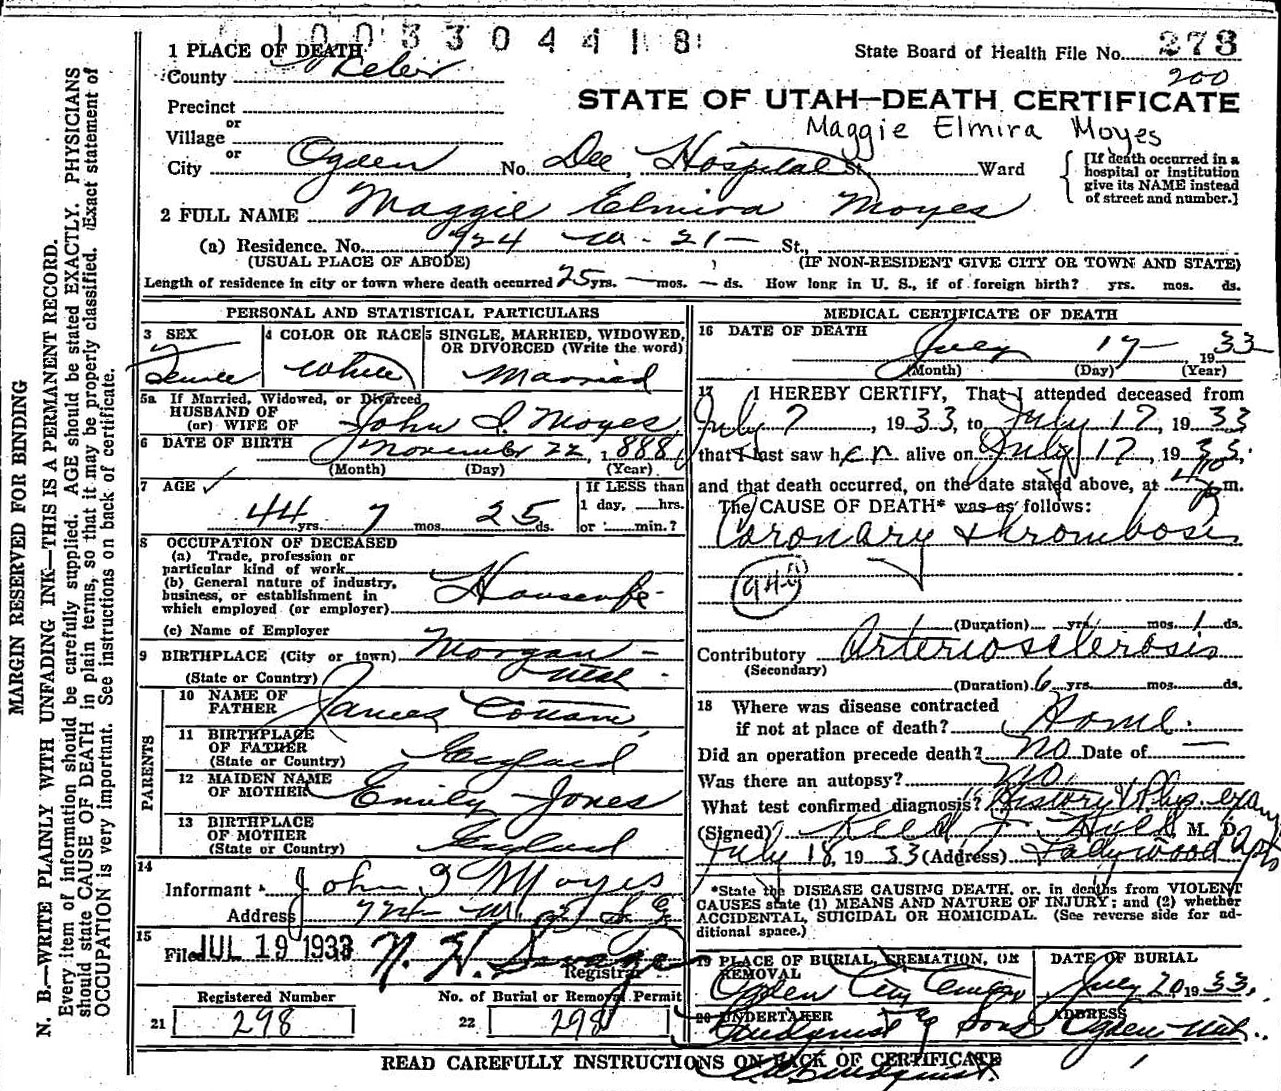 1003304418
1 PLACE OF DEATH
State Board of Health File No. 273
County Weber
200
STATE OF UTAH—DEATH CERTIFICATE
Precinct
or
Village
Maggie Elmira Moyes
or
City Ogden No. Dee, Hospital St. Ward
[If death occurred in a hospital or institution give its NAME instead of street and number.]
2 FULL NAME Maggie Elmira Moyes
(a) Residence. No. 724 W. 21 — St.,
(USUAL PLACE OF ABODE) (IF NON-RESIDENT GIVE CITY OR TOWN AND STATE)
Length of residence in city or town where death occurred 25 yrs. — mos. — ds. How long in U. S., if of foreign birth? yrs. mos. ds.
PERSONAL AND STATISTICAL PARTICULARS
3 SEX
Female
4 COLOR OR RACE
White
5 SINGLE, MARRIED, WIDOWED,
OR DIVORCED (Write the word)
Married
5a If Married, Widowed, or Divorced
HUSBAND OF
(or) WIFE OF John I. Moyes
6 DATE OF BIRTH November 22, 1888
(Month) (Day) (Year)
7 AGE ✓
44 yrs. 7 mos. 25 ds.
If LESS than
1 day, hrs.
or min.?
8 OCCUPATION OF DECEASED
(a) Trade, profession or
particular kind of work
(b) General nature of industry,
business, or establishment in
which employed (or employer)
Housewife
(c) Name of Employer
9 BIRTHPLACE (City or town) Morgan —
(State or Country) Utah
PARENTS
10 NAME OF
FATHER James Cottam
11 BIRTHPLACE
OF FATHER
(State or Country) England
12 MAIDEN NAME
OF MOTHER Emily Jones
13 BIRTHPLACE
OF MOTHER
(State or Country) England
14
Informant John I Moyes
Address 724 W. 21 St
15
Filed JUL 19 1933 N. H. Savage
Registrar
Registered Number
21 298
No. of Burial or Removal Permit
22 298
MEDICAL CERTIFICATE OF DEATH
16 DATE OF DEATH
July 17 — 1933
(Month) (Day) (Year)
17 I HEREBY CERTIFY, That I attended deceased from
July 7, 1933, to July 17, 1933
that I last saw her alive on July 17, 1933.
and that death occurred, on the date stated above, at 4:10 p m.
The CAUSE OF DEATH* was as follows:
Coronary thrombosis
94
(Duration) yrs. mos. 1 ds.
Contributory Arteriosclerosis
(Secondary)
(Duration) 6 yrs. mos. ds.
18 Where was disease contracted
if not at place of death? Home.
Did an operation precede death? No Date of —
Was there an autopsy? No
What test confirmed diagnosis? History & Phys. exam
(Signed) M. D.
July 18, 1933 (Address)
*State the DISEASE CAUSING DEATH, or, in deaths from VIOLENT
CAUSES state (1) MEANS AND NATURE OF INJURY; and (2) whether
ACCIDENTAL, SUICIDAL OR HOMICIDAL. (See reverse side for ad-
ditional space.)
19 PLACE OF BURIAL, CREMATION, OR
REMOVAL
Ogden City Cemetery
DATE OF BURIAL
July 20 1933.
20 UNDERTAKER
Lindquist & Sons
ADDRESS
Ogden Utah.
READ CAREFULLY INSTRUCTIONS ON BACK OF CERTIFICATE
MARGIN RESERVED FOR BINDING
N. B.—WRITE PLAINLY WITH UNFADING INK—THIS IS A PERMANENT RECORD.
Every item of information should be carefully supplied. AGE should be stated EXACTLY. PHYSICIANS
should state CAUSE OF DEATH in plain terms, so that it may be properly classified. Exact statement of
OCCUPATION is very important. See instructions on back of certificate.